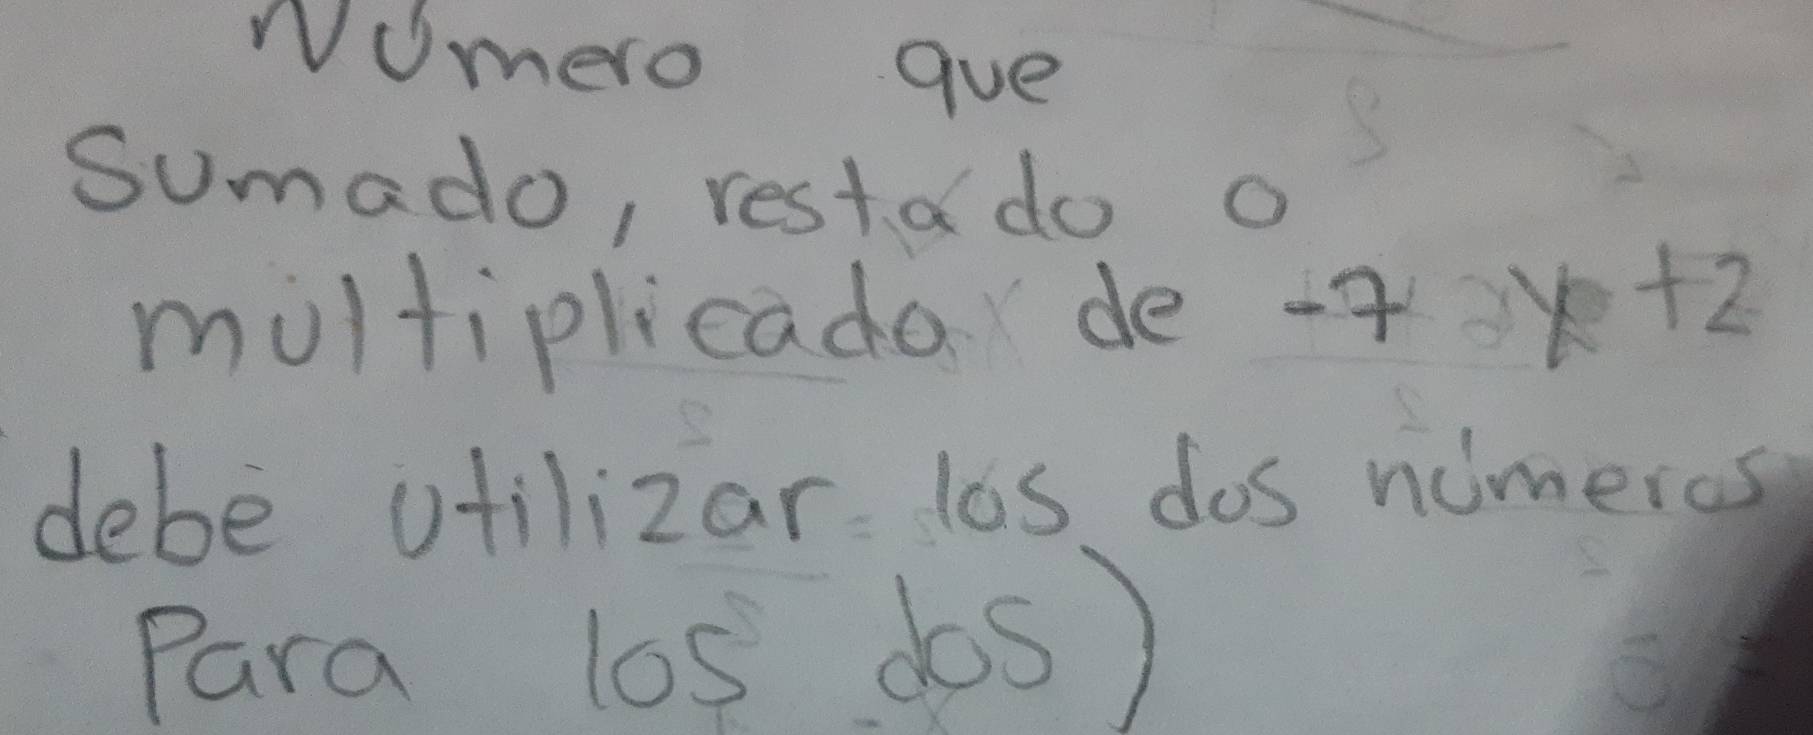 Número que
Sumado, restado o
multiplicado de -7 y +2
debe utilizar los dos números
Para los dos)